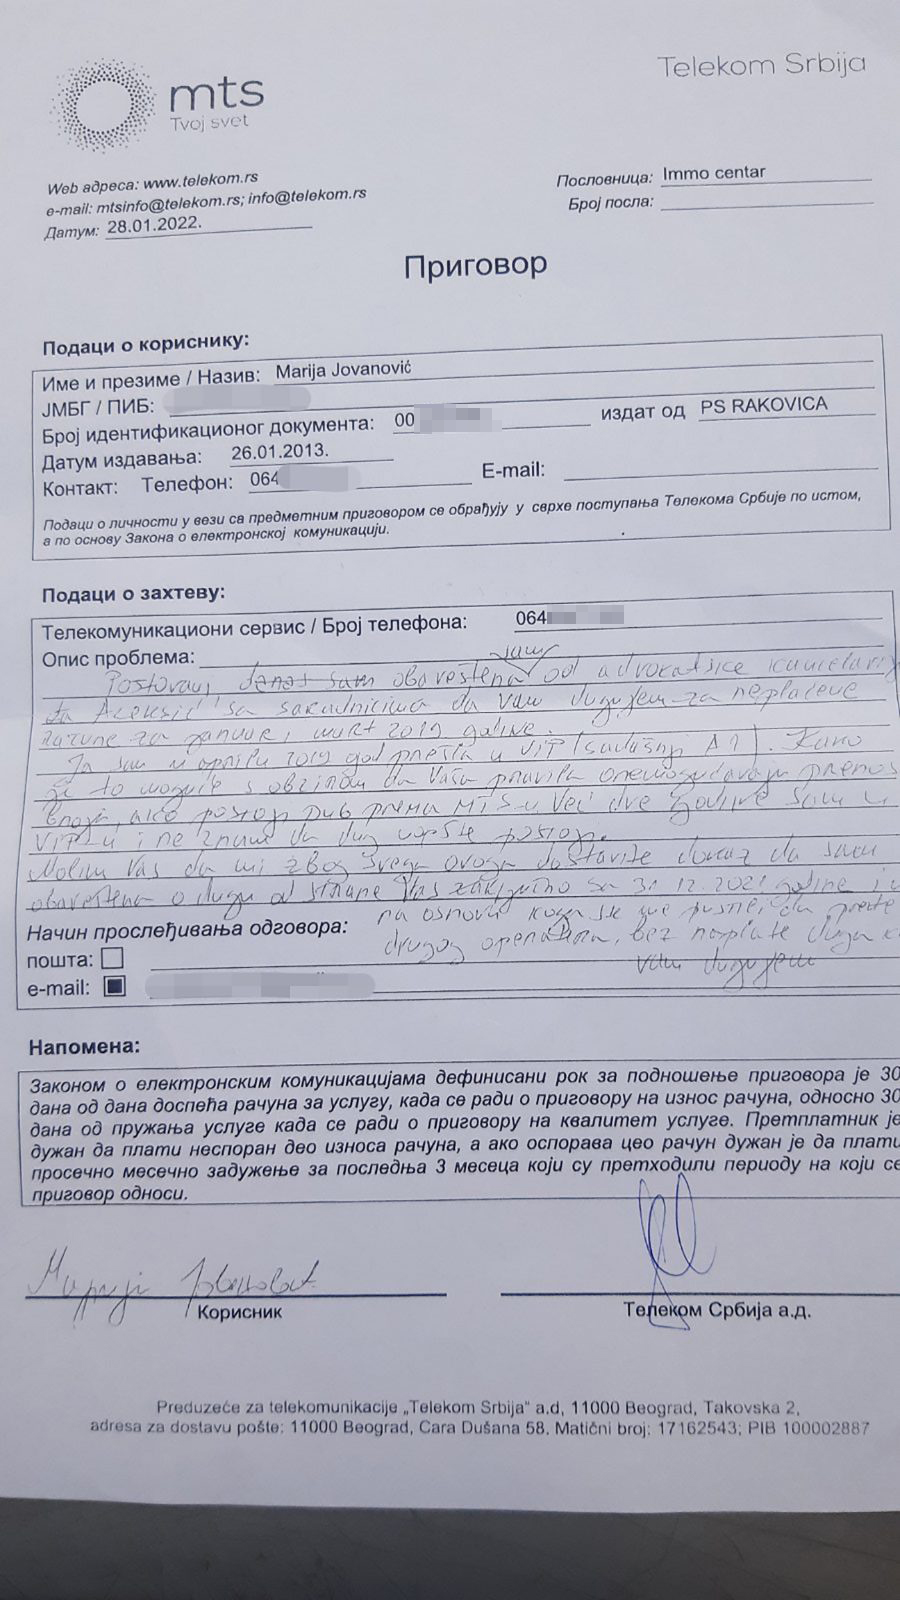 mts
Tvoj svet
Telekom Srbija
Web адреса: www.telekom.rs
e-mail: mtsinfo@telekom.rs; info@telekom.rs
Датум: 28.01.2022.
Пословница: Immo centar
Број посла:
Приговор
Подаци о кориснику:
Име и презиме / Назив: Marija Jovanović
ЈМБГ / ПИБ:
Број идентификационог документа: 00 издат од PS RAKOVICA
Датум издавања: 26.01.2013.
Контакт: Телефон: 064 E-mail:
Подаци о личности у вези са предметним приговором се обрађују у сврхе поступања Телекома Србије по истом,
а по основу Закона о електронској комуникацији.
Подаци о захтеву:
Телекомуникациони сервис / Број телефона: 064
Опис проблема:
Poštovani, danas sam obaveštena od advokatske kancelarije
da Aleksić sa saradnicima da Vam dugujem za neplaćene
račune za januar i mart 2019 godine.
Ja sam u aprilu 2019 god prešla u VIP (sadašnji A1). Kako
je to moguće s obzirom da Vaša pravila onemogućavaju prenos
broja, ako postoji dug prema MTS-u. Već dve godine sam u
VIP-u i ne znam da dug uopšte postoji.
Molim Vas da mi zbog svega ovoga dostavite dokaz da sam
obaveštena o dugu od strane Vas zaključno sa 31.12.2021 godine i
na osnovu koga ste me pustili da pređem
drugog operatera, bez naplate duga
Vam dugujem
Начин прослеђивања одговора:
пошта:
e-mail:
Напомена:
Законом о електронским комуникацијама дефинисани рок за подношење приговора је 30
дана од дана доспећа рачуна за услугу, када се ради о приговору на износ рачуна, односно 30
дана од пружања услуге када се ради о приговору на квалитет услуге. Претплатник је
дужан да плати неспоран део износа рачуна, а ако оспорава цео рачун дужан је да плати
просечно месечно задужење за последња 3 месеца који су претходили периоду на који се
приговор односи.
Марија Јовановић
Корисник
Телеком Србија а.д.
Preduzeće za telekomunikacije „Telekom Srbija" a.d, 11000 Beograd, Takovska 2,
adresa za dostavu pošte: 11000 Beograd, Cara Dušana 58. Matični broj: 17162543; PIB 100002887